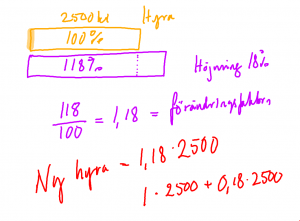 2500 kr Hyra
100%
118% Höjning 18%
118/100 = 1,18 = förändringsfaktorn
Ny hyra = 1,18·2500
1·2500 + 0,18·2500